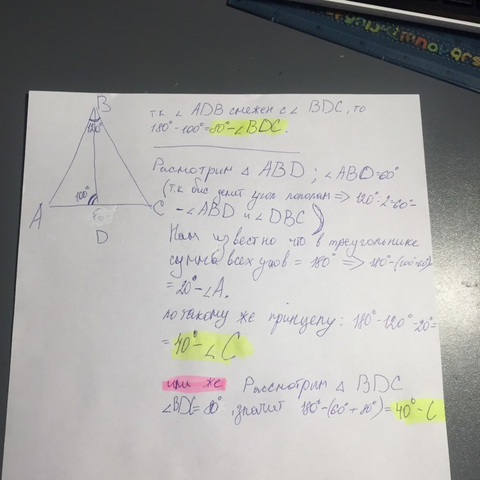 B
120°
100°
A
C
D
т.к ∠ ADB смежен с ∠ BDC, то
180°-100°=80°-∠BDC.
Расмотрим △ ABD ; ∠ABD=60°
(т.к бис делит угол пополам ⇒ 120°:2=60°-
-∠ABD и ∠DBC)
Нам известно что в треугольнике
сумма всех углов = 180° ⇒ 180°-(100°+60°)
=20°-∠A.
по такому же принцепу: 180°-120°-20°=
=40°-∠C
или же Рассмотрим △ BDC
∠BDC=80° значит 180°-(60°+80°)=40°-C